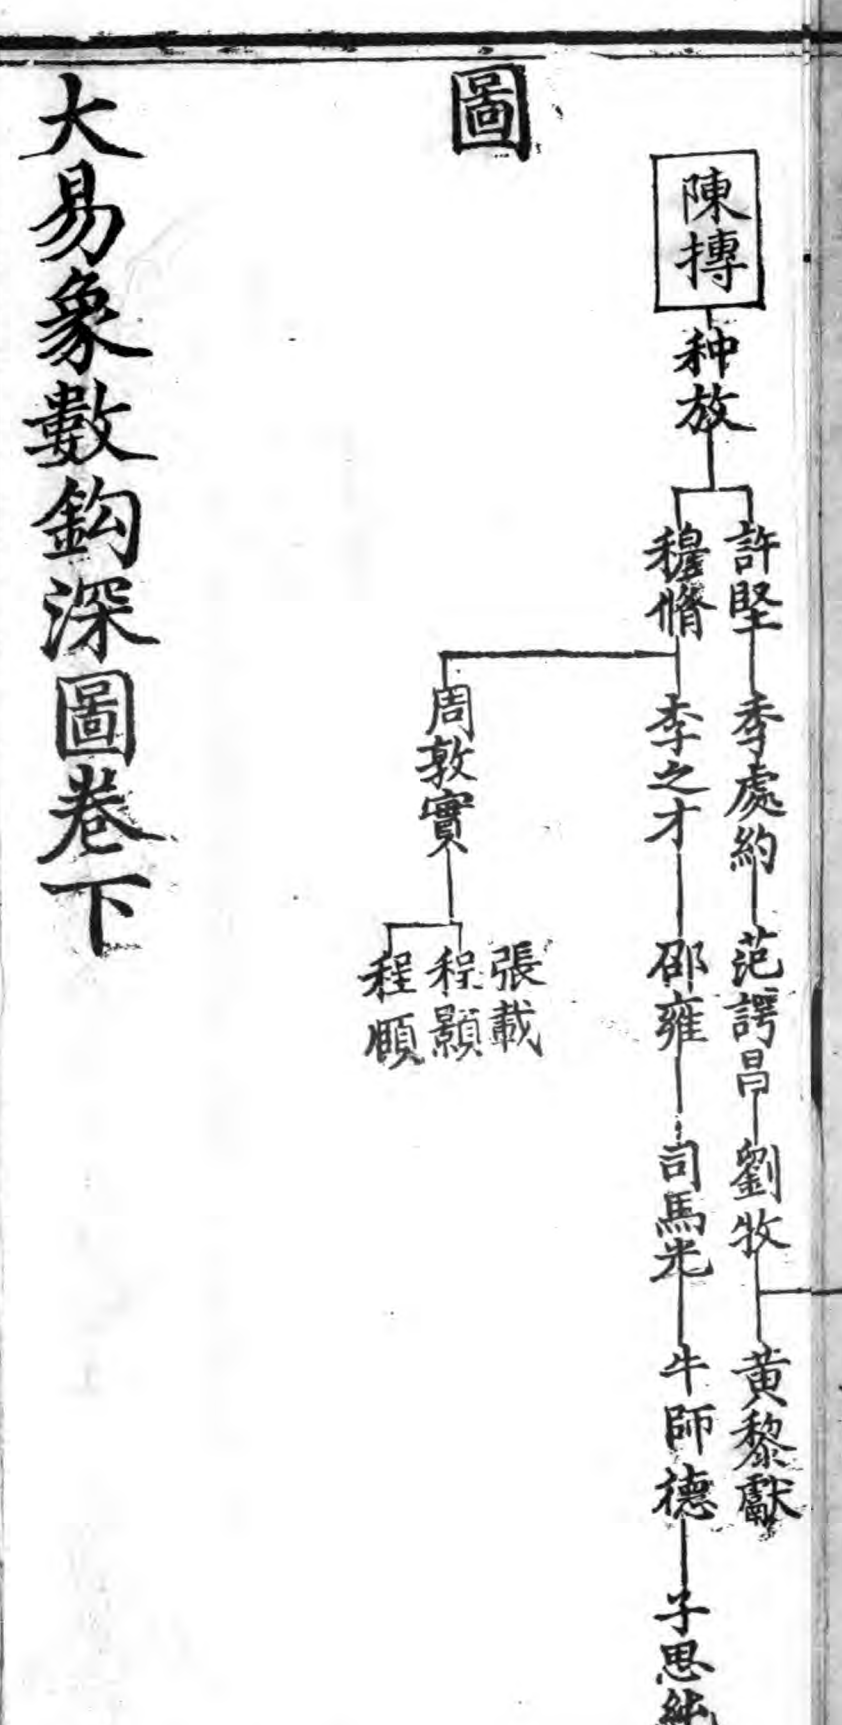 陳摶
种放
許堅
季處約
范諤昌
劉牧
黄黎獻
穆脩
李之才
邵雍
司馬光
牛師德
子思純
圖
周敦實
張載
程顥
程頤
大易象數鈎深圖卷下